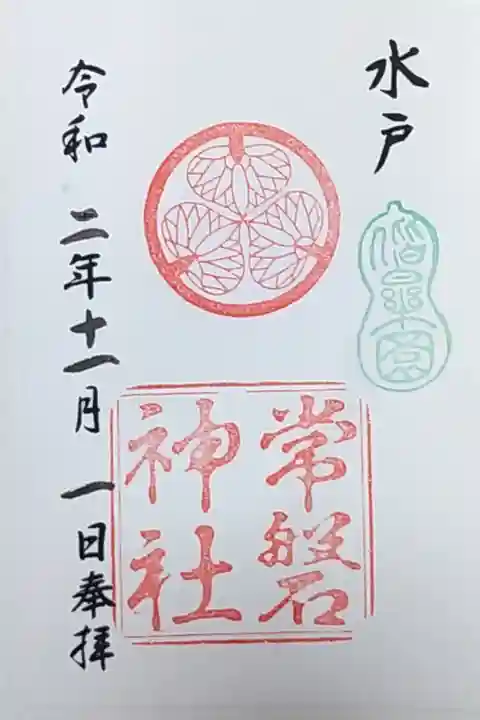 水戸
偕楽園
常磐
神社
令和 二年十一月 一日奉拝